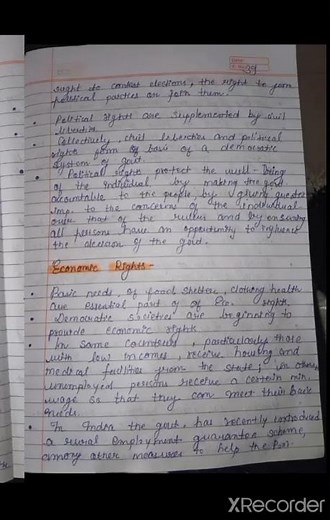 39
right to contest elections, the right to join
political parties or form them.
• Political rights are supplemented by civil
liberties.
• Collectively, civil liberties and political
rights form of basis of a democratic
system of govt.
• Political rights protect the well-being
of the individual by making the govt
accountable to the people, by giving greater
imp. to the concerns of the individual
over that of the rulers and by ensuring
all persons have an opportunity to influence
the decision of the govt.
Economic Rights -
• Basic needs of food shelter, clothing health
are essential part of of eco. rights.
• Democratic societies are beginning to
provide economic rights.
• In some countries, particularly those
with low incomes, receive housing and
medical facilities from the state; in others,
unemployed persons receive a certain min.
wage so that they can meet their basic
needs.
• In India the govt. has recently introduced
a rural employment guarantee scheme,
among other measures to help the
XRecorder